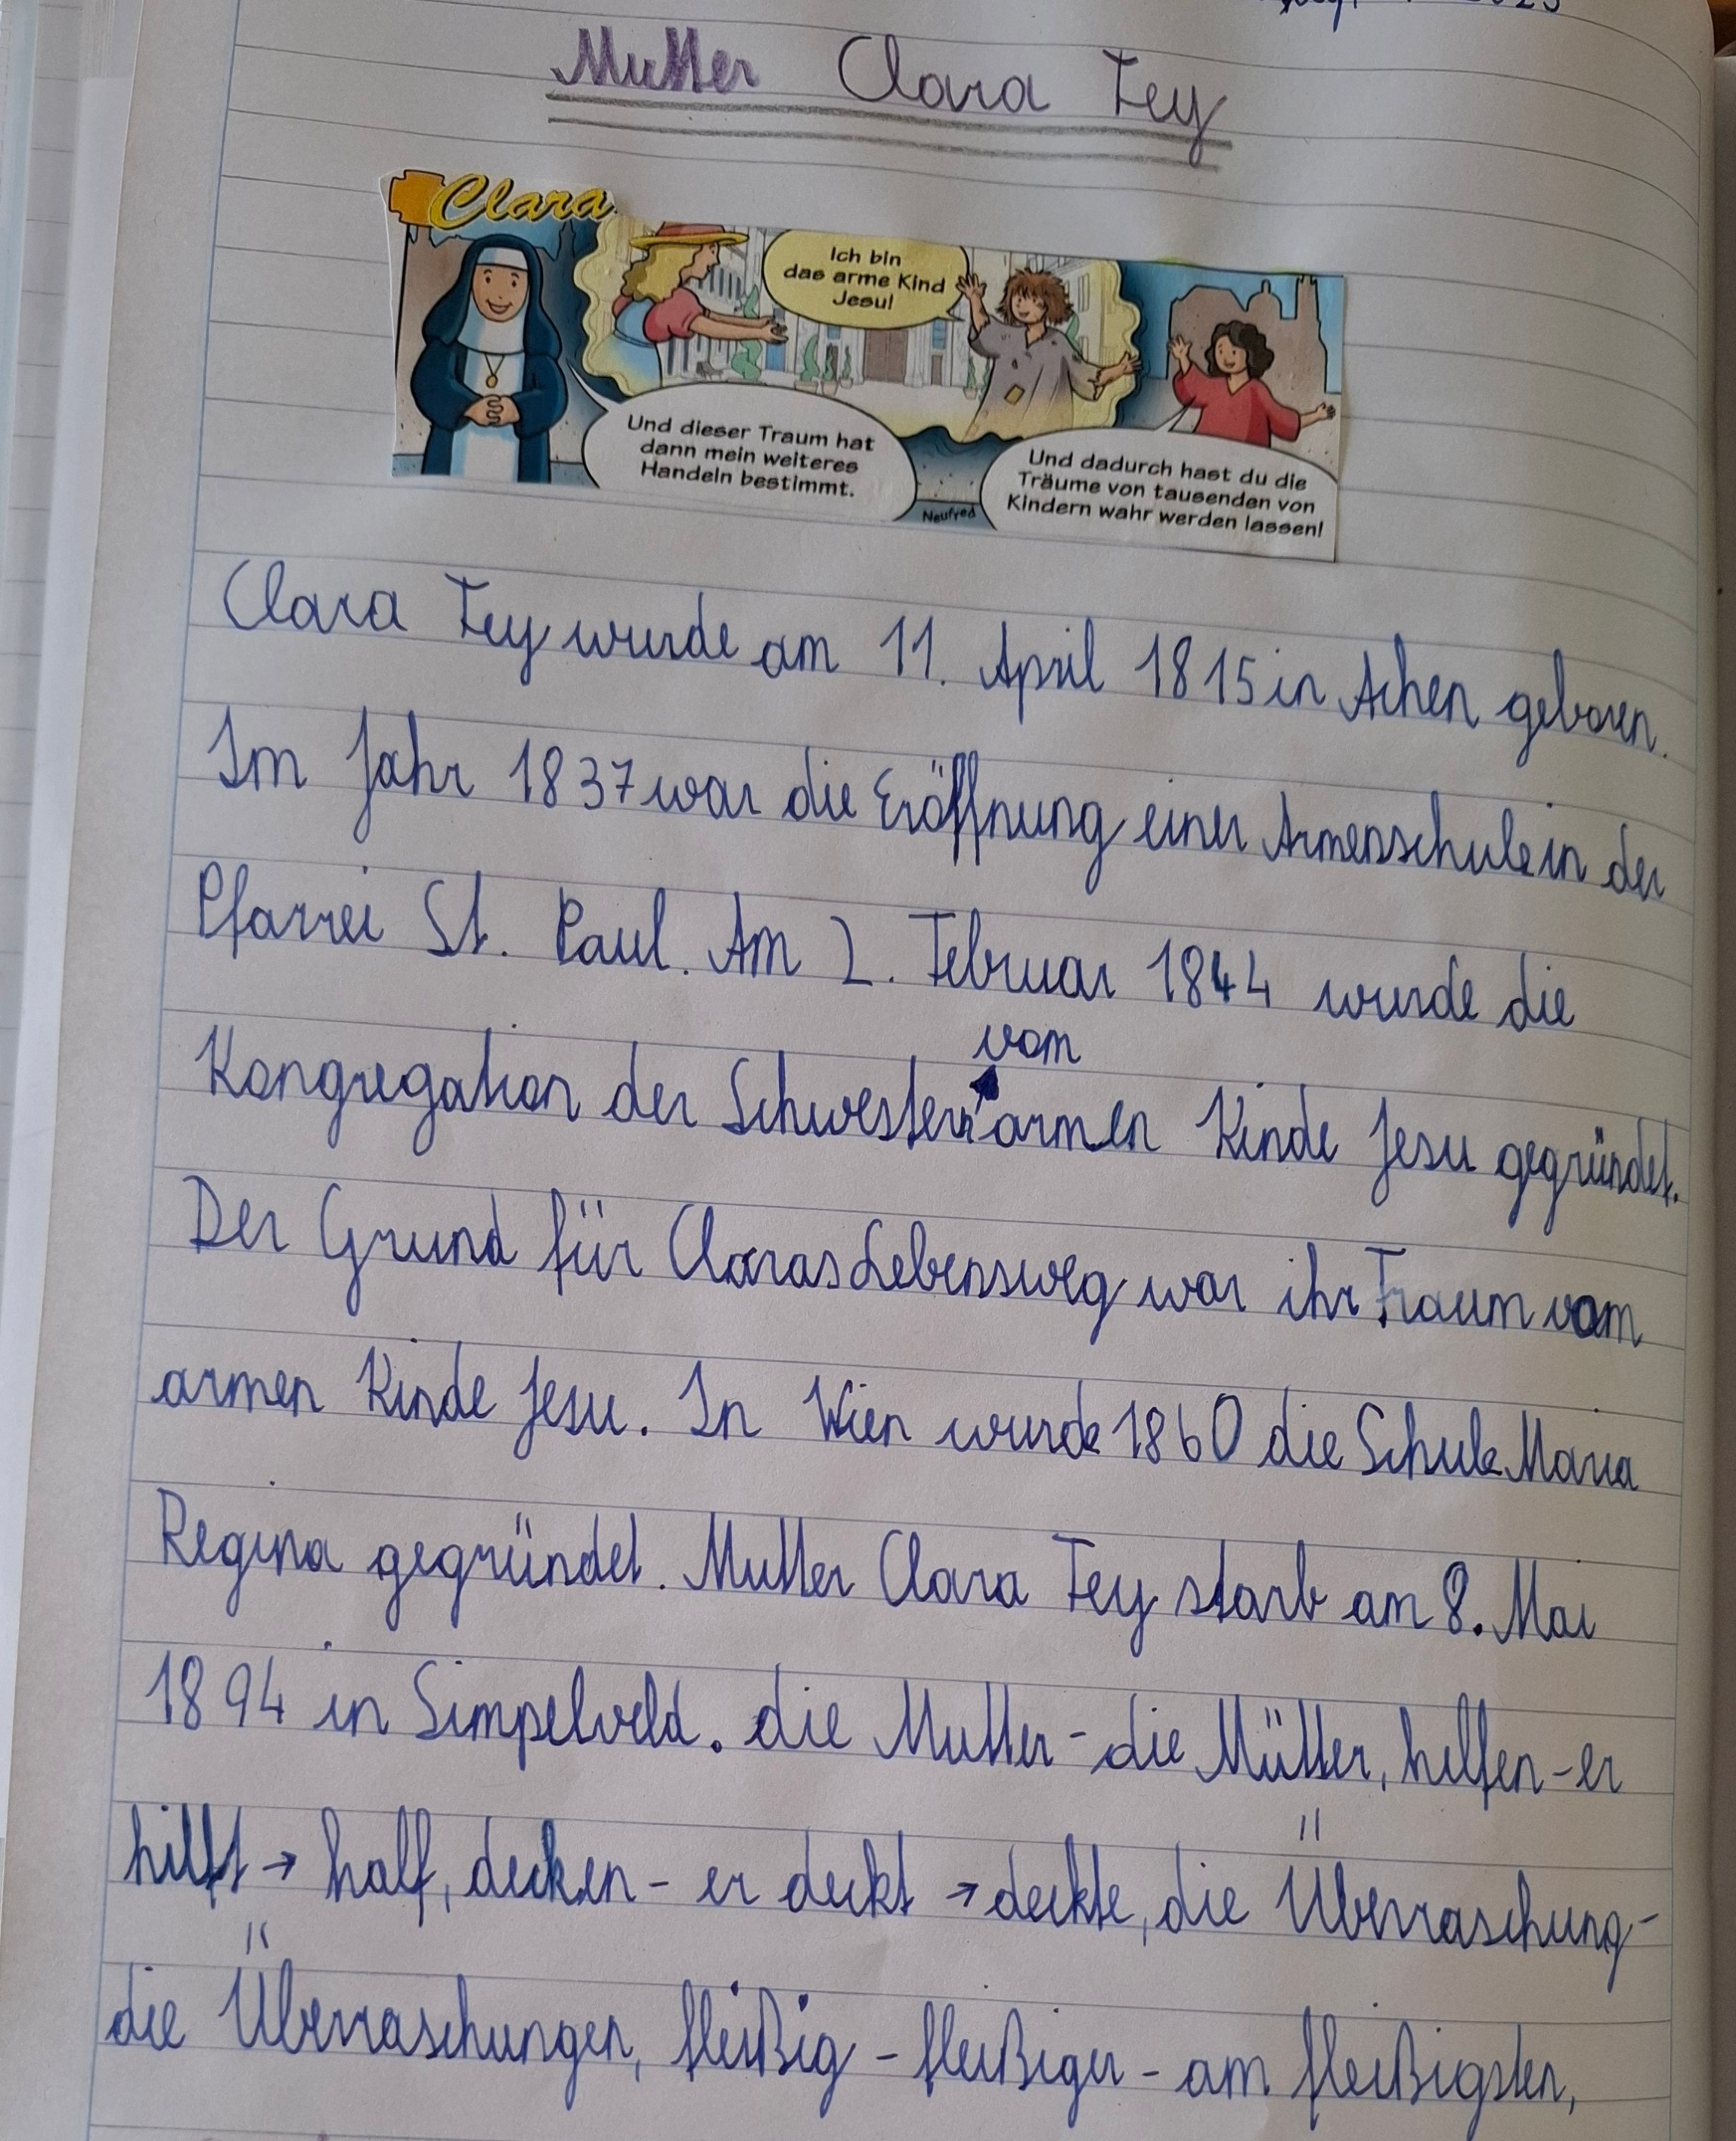 2023
Mutter Clara Fey
Clara
Ich bin
das arme Kind
Jesu!
Und dieser Traum hat
dann mein weiteres
Handeln bestimmt.
Neufred
Und dadurch hast du die
Träume von tausenden von
Kindern wahr werden lassen!
Clara Fey wurde am 11. April 1815 in Achen geboren.
Im Jahr 1837 war die Eröffnung einer Armenschule in der
Pfarrei St. Paul. Am 2. Februar 1844 wurde die
vom
Kongregation der Schwestern armen Kinde Jesu gegründet.
Der Grund für Claras Lebensweg war ihr Traum vom
armen Kinde Jesu. In Wien wurde 1860 die Schule Maria
Regina gegründet. Mutter Clara Fey starb am 8. Mai
1894 in Simpelveld. die Mutter - die Mütter, helfen - er
hilft → half, decken - er deckt → deckte, die Überraschung -
die Überraschungen, fleißig - fleißiger - am fleißigsten,